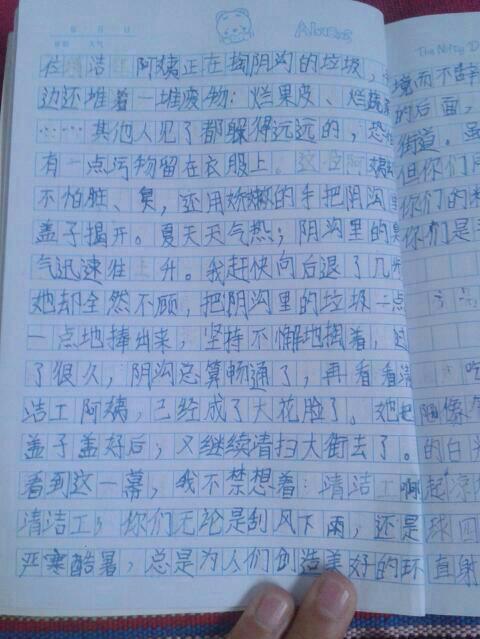 位清洁工阿姨正在掏阴沟的垃圾，
边还堆着一堆废物：烂果皮、烂蔬
……其他人见了都躲得远远的，恐
有一点污物留在衣服上。这位阿姨
不怕脏、臭，还用娇嫩的手把阴沟
盖子揭开。夏天天气热；阴沟里的臭
气迅速往上升。我赶快向后退了几
她却全然不顾，把阴沟里的垃圾一点
一点地捧出来，坚持不懈地掏着，过
了很久，阴沟总算畅通了，再看看清
洁工阿姨，已经成了大花脸了。她把
盖子盖好后；又继续清扫大街去了。
看到这一幕，我不禁想着：清洁工啊
清洁工，你们无论是刮风下雨，还是
严寒酷暑，总是为人们创造美好的环
境而不
的后面，
街道。
但你们
你们的
你们是
吃
的白
球
直射